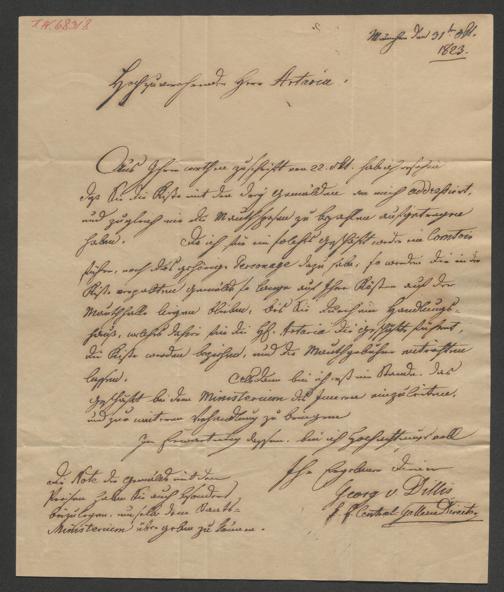 I.N. 68318
München den 31t Okt.
1823.
Hochzuverehrender Herr Artaria.
Aus Ihrem werthen Zuschrift vom 22. Okt. habe ich ersehen
daß Sie die Kiste mit den drey Gemälden an mich addressirt,
und zugleich mir die Mauthspesen zu bezahlen aufgetragen
haben. Da ich für ein solches Geschäft weder ein Comtoir
führe, noch das gehörige Personage dazu habe, so werden die in der
Kiste verpackten Gemälde so lange auf Ihre Kosten auf der
Mauthhalle liegen bleiben, bis Sie durch ein Handlungs-
haus, welches dahier für die HH. Artaria die Geschäfte führet,
die Kiste werden beziehen, und die Mauthgebühren entrichten
lassen. Alsdann bin ich erst im Stande, das
Geschäft bei dem Ministerium des Innern einzuleiten,
und zur weiteren Verhandlung zu bringen
In Erwartung dessen, bin ich hochachtungsvoll
Ihr Ergebener Diener
Georg v Dillis
k. Central Gallerie Director
die Note der Gemälde mit den
Preisen haben Sie auch
beizulegen, um selbe dem Staats-
Ministerium übergeben zu können.